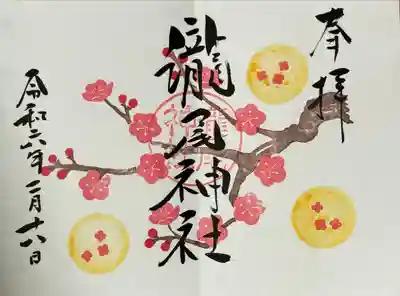 奉拝
瀧尾神社
令和六年二月十八日